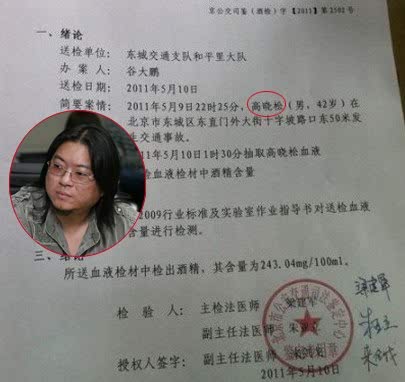 京公交司鉴（酒检）字【2011】第2502号
一、绪论
送检单位：东城交通支队和平里大队
办案人：谷大鹏
送检日期：2011年5月10日
简要案情：2011年5月9日22时25分，高晓松（男，42岁）在
北京市东城区东直门外大街十字坡路口东50米发
生交通事故。
年5月10日1时30分抽取高晓松血液
血液检材中酒精含量
2009行业标准及实验室作业指导书对送检血液
含量进行检测。
三、结论
所送血液检材中检出酒精，其含量为243.04mg/100ml。
检验人：主检法医师
副主任法医师 朱
副主任法医师
授权人签字：
2011年5月10日